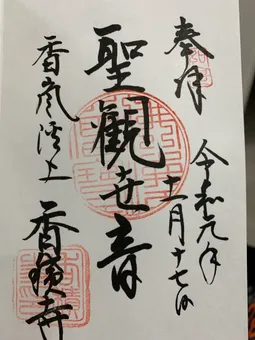 奉拝
令和元年
十一月十七日
聖觀世音
香嵐渓上
香積寺